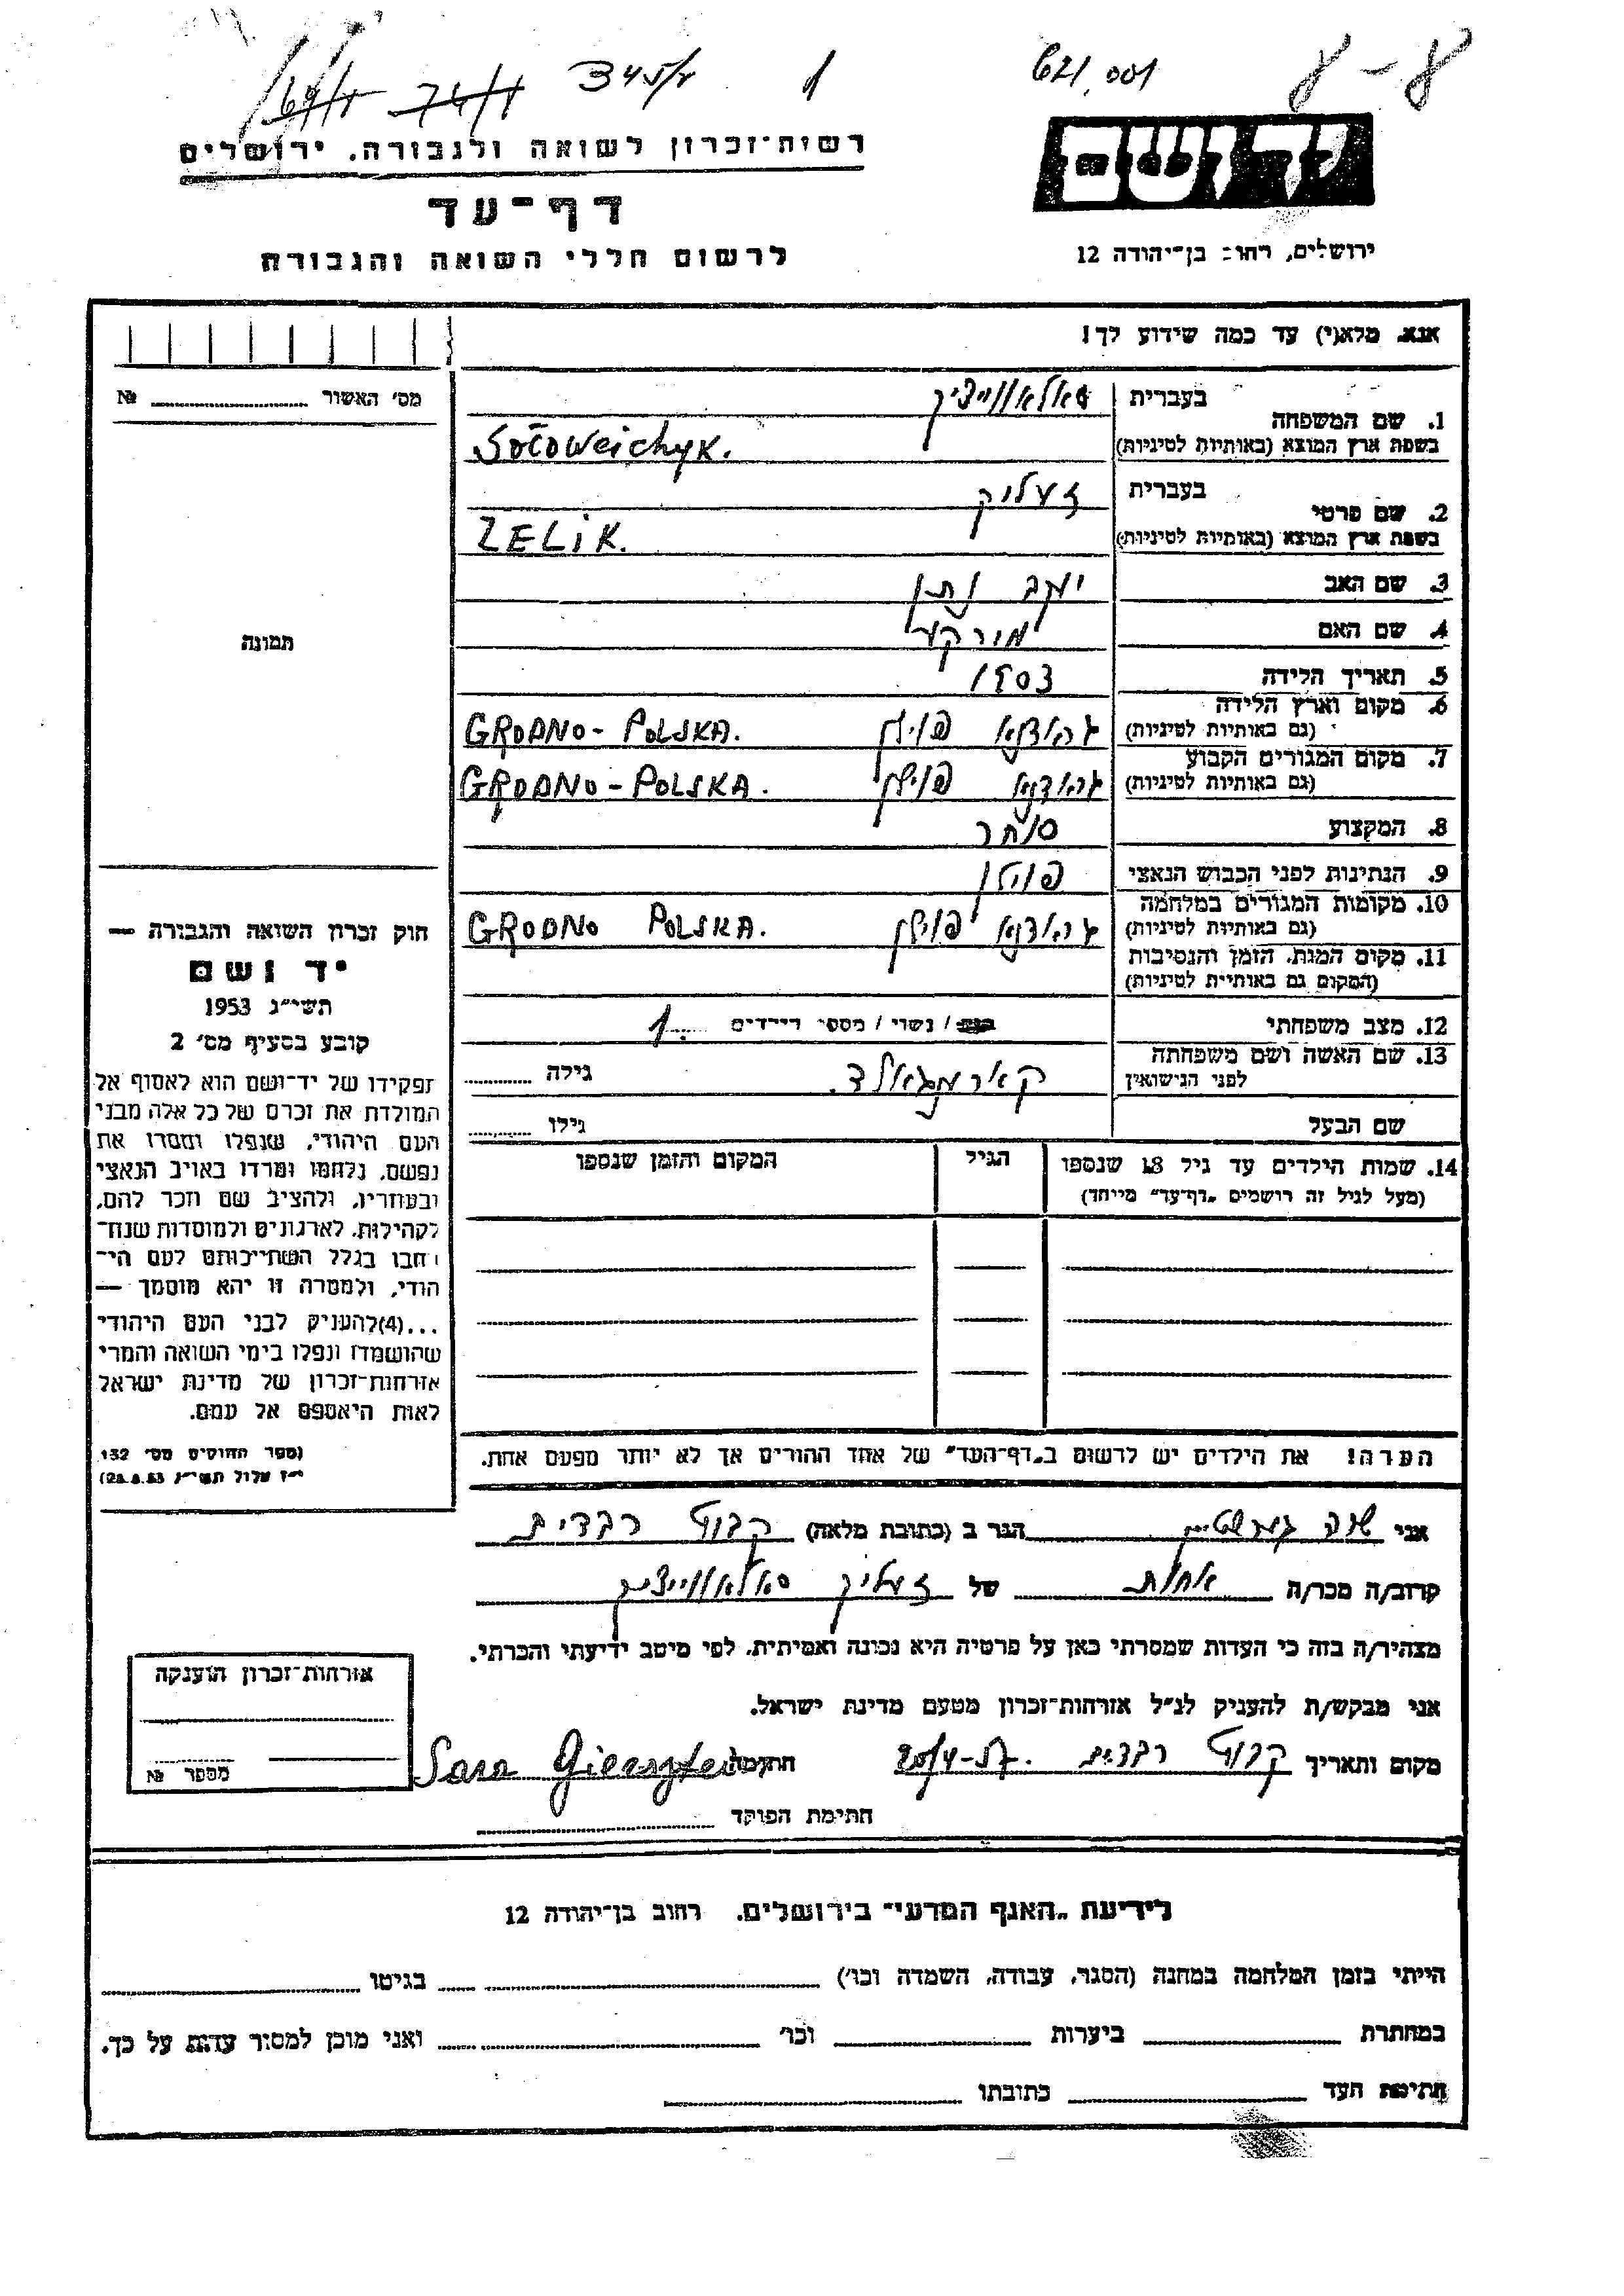 345/ז 1 621.001
רשות־זכרון לשואה ולגבורה. ירושלים
דף־עד
לרשום חללי השואה והגבורה
יד ושם
ירושלים, רחוב בן־יהודה 12
אנא. מלא(י) עד כמה שידוע לך!
מס׳ האשור №
תמונה
1. שם המשפחה
בעברית סאלאווייציק
בשפת ארץ המוצא (באותיות לטיניות) Sołoweichyk.
2. שם פרטי
בעברית זעליק
בשפת ארץ המוצא (באותיות לטיניות) ZELiK.
3. שם האב יעקב נתן
4. שם האם מירקע
5. תאריך הלידה 1903
6. מקום וארץ הלידה
(גם באותיות לטיניות) גראדנא פוילן GRODNO - POLSKA.
7. מקום המגורים הקבוע
(גם באותיות לטיניות) גראדנא פוילן GRODNO - POLSKA.
8. המקצוע סוחר
9. הנתינות לפני הכבוש הנאצי פולין
10. מקומות המגורים במלחמה
(גם באותיות לטיניות) גראדנא פוילן GRODNO POLSKA.
11. מקום המות. הזמן והנסיבות
(המקום גם באותיות לטיניות)
12. מצב משפחתי רווק / נשוי / מספר הילדים 1
13. שם האשה ושם משפחתה
לפני הנישואין גילה
שם הבעל גילו
14. שמות הילדים עד גיל 18 שנספו הגיל המקום והזמן שנספו
(מעל לגיל זה רושמים „דף־עד״ מייחד)
הערה! את הילדים יש לרשום ב„דף־העד״ של אחד ההורים אך לא יותר מפעם אחת.
חוק זכרון השואה והגבורה —
יד ושם
תשי״ג 1953
קובע בסעיף מס׳ 2
תפקידו של יד־ושם הוא לאסוף אל
המולדת את זכרם של כל אלה מבני
העם היהודי, שנפלו ומסרו את
נפשם, נלחמו ומרדו באויב הנאצי
ובעוזריו, ולהציב שם וזכר להם,
לקהילות, לארגונים ולמוסדות שנח־
רבו בגלל השתייכותם לעם הי־
הודי, ולמטרה זו יהא מוסמך —
...(4)להעניק לבני העם היהודי
שהושמדו ונפלו בימי השואה והמרי
אזרחות־זכרון של מדינת ישראל
לאות היאספם אל עמם.
(ספר החוקים מס׳ 132
י״ז אלול תשי״ג 28.8.53)
אני שרה הגר ב (כתובת מלאה) קבוץ רבדים
קרוב/ה מכר/ה אחות של זעליק סאלאווייציק
מצהיר/ה בזה כי העדות שמסרתי כאן על פרטיה היא נכונה ואמיתית, לפי מיטב ידיעתי והכרתי.
אני מבקש/ת להעניק לנ״ל אזרחות־זכרון מטעם מדינת ישראל.
מקום ותאריך קבוץ רבדים. 20/4-57 חתימה Sara
חתימת הפוקד
אזרחות־זכרון הוענקה
מספר №
לידיעת „האגף המדעי״ בירושלים. רחוב בן־יהודה 12
הייתי בזמן המלחמה במחנה (הסגר, עבודה, השמדה וכו׳) בגיטו
במחתרת ביערות וכו׳ ואני מוכן למסור עדות על כך.
חתימת העד כתובתו